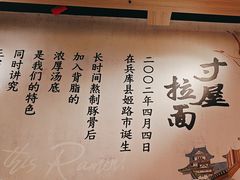 寸屋
拉面
二〇〇二年四月四日
在兵库县姬路市诞生
长时间熬制豚骨后
加入背脂的
浓厚汤底
是我们的特色
同时讲究